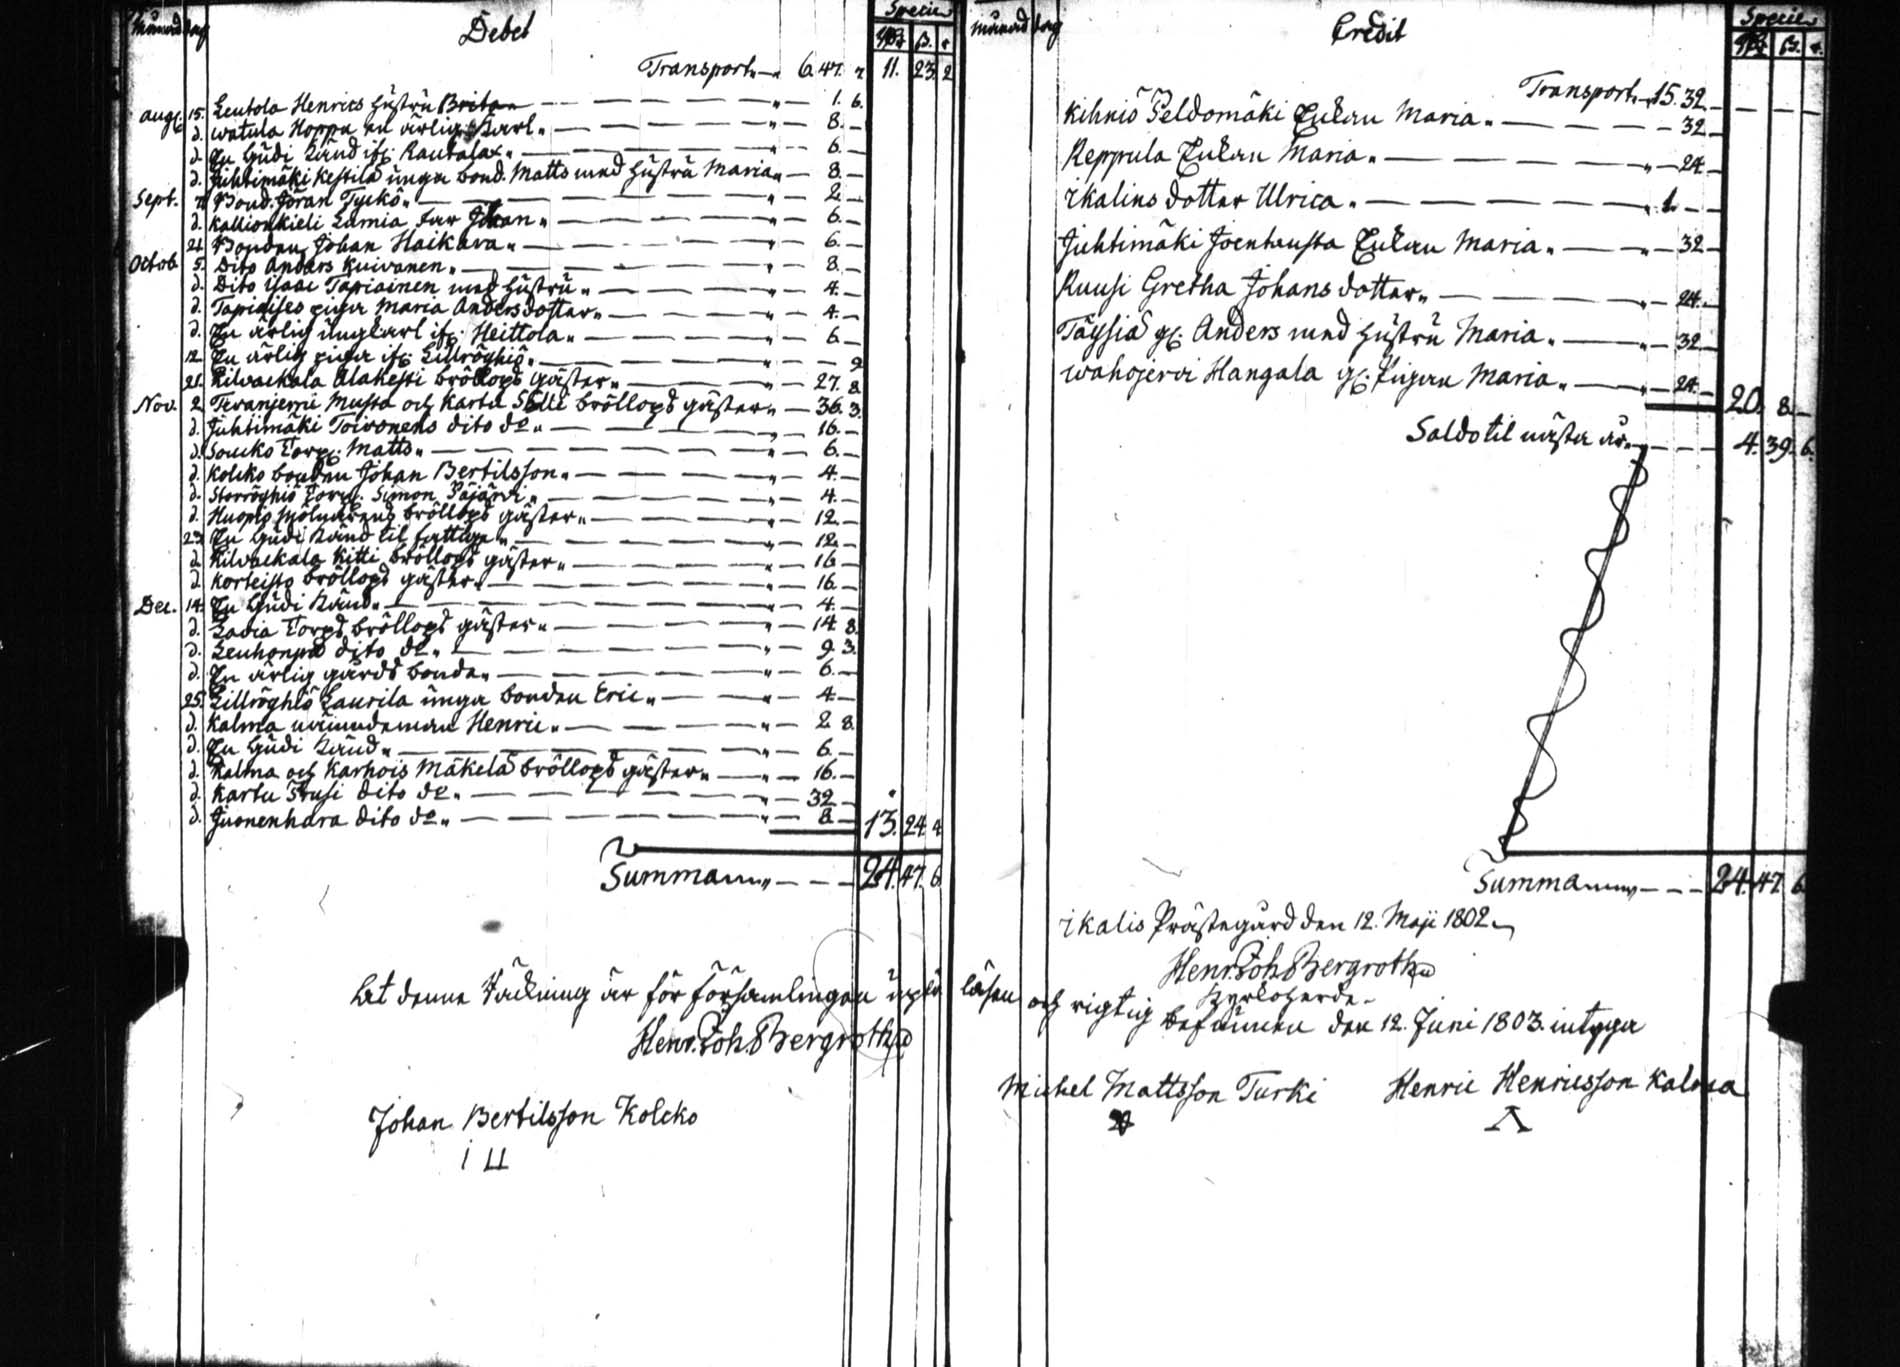 månad dag Debet Specie
Rd ß. r
Transport 6. 47. 2 11. 23. 2
aug. 15. Leutola Henrics hustru Brita 1. 6.
d. watula Hoppu en ärlig Karl 8.
d. En Gudi känd if. Rautala 6.
d. Juhtimäki Kestilä unga bond. Matts med hustru Maria 8.
Sept. Bond. Jöran Tyckö 2.
d. Kallionkieli Lamia far Johan 6.
21 Bonden Johan Haikara 6.
Octob. 5. Dito Anders Kuivanen 8.
d. Dito Isaac Tapiainen med hustru 4.
d. piga Maria Anders dotter 4.
d. En ärlig ungkarl if. Heittola 6.
12. En ärlig piga if. Lillröyhiö 9
21. Kilvackala Alakesti bröllops gäster 27. 8.
Nov. 2. Tevanjemi Musta och Kartu bröllops gäster 36. 3.
d. Juhtimäki Toivonens dito do 16.
d. Soucko Torp. Matts 6.
d. Kolcko bonden Johan Bertilsson 4.
d. Storröyhiö Torp. Simon Päjärvi 4.
d. Huopio bröllops gäster 12.
23. En Gudi känd til fattiga 12.
d. Kilvackala Kitti bröllops gäster 16
d. Korteisto bröllops gäster 16.
Dec. 14. En Gudi känd 4.
d. Ladia Torps bröllops gäster 14. 8.
d. Leuhonpä dito do 9. 3.
d. En ärlig gårds bonde 6.
25. Lillröyhiö Laurila unga bonden Eric 4.
d. Kalma nämndeman Henric 2. 8.
d. En Gudi känd 6.
d. Kalma och Karhois Mäkelä bröllops gäster 16.
d. Kartu dito do 32
d. Juonenhara dito do 8. 13. 24. 4
Summa 24. 47. 6
månad dag Credit Specie
Rd ß. r.
Transport 15. 32.
Kihniö Peldomäki Enkan Maria 32
Reppula Enkan Maria 24
Ikalins dotter Ulrica 1.
Juhtimäki Joentausta Enkan Maria 32
Ruusi Gretha Johans dotter 24.
Täysiä g. Anders med hustru Maria 32
wahojerwi Hangala g. Pigan Maria 24. 20. 8.
Saldo til nästa år 4. 39. 6.
Summa 24. 47. 6
Ikalis Prästegård den 12. Maji 1802
Henr. Joh. Bergroth
Kyrkoherde
At denne Räkning är för församlingen uplä läsen och rigtig befunnen den 12. Juni 1803. intyga
Henr. Joh. Bergroth
Michel Mattsson Turki Henric Henricsson Kalma
Johan Bertilsson Kolcko